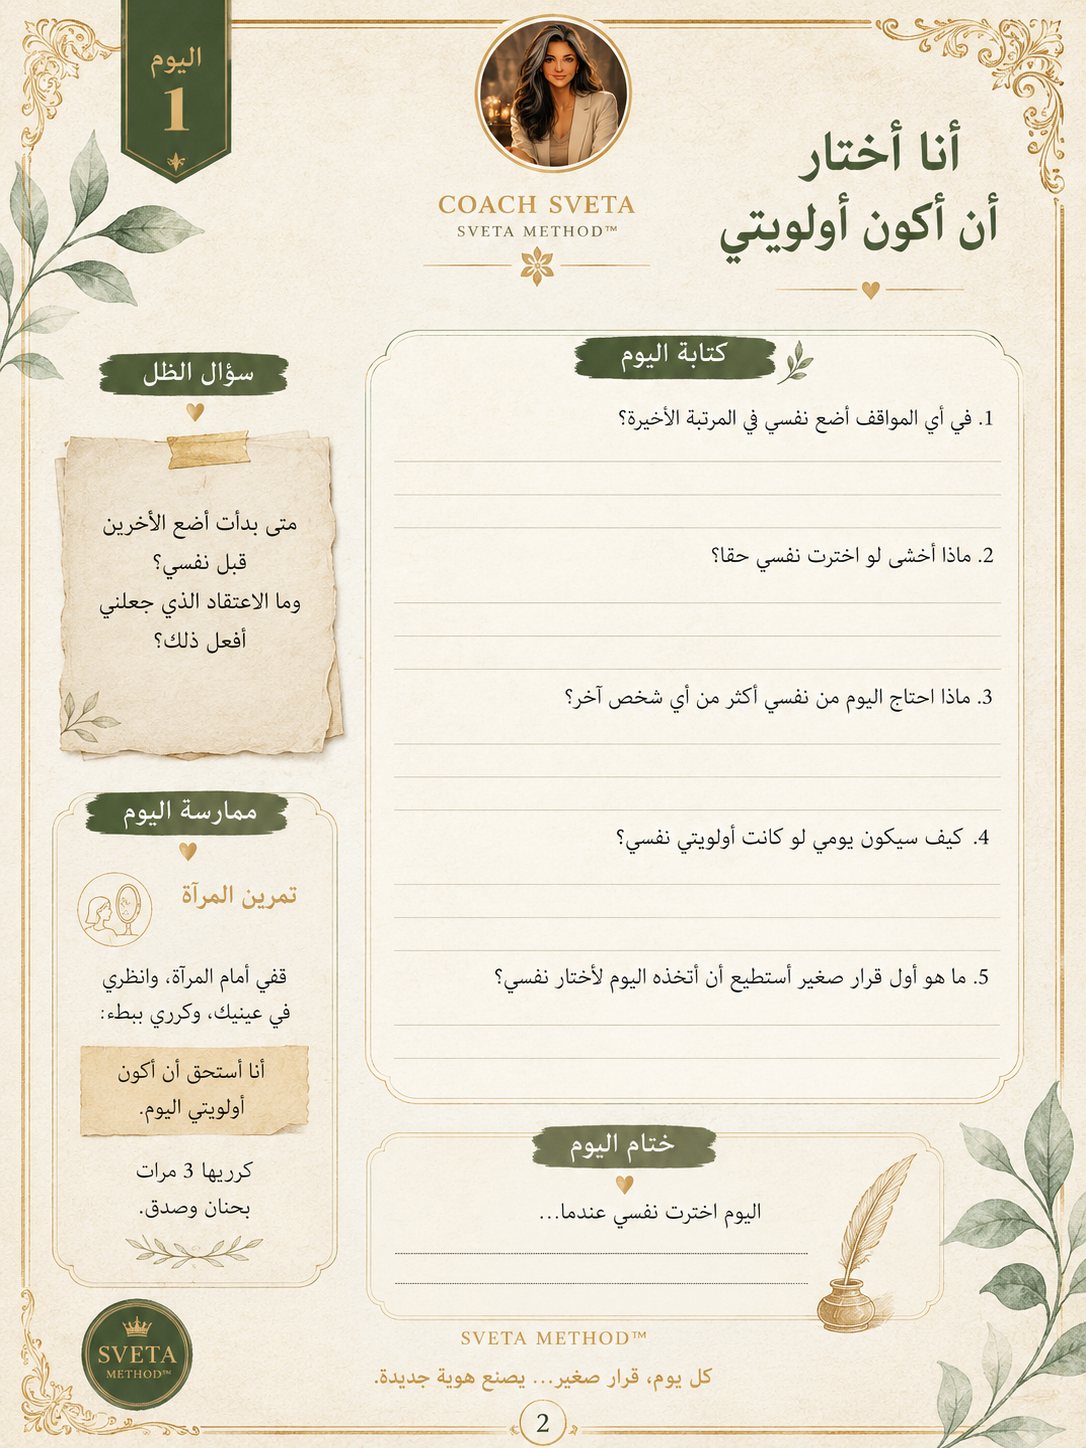 اليوم
1
COACH SVETA
SVETA METHOD™
أنا أختار
أن أكون أولويتي
كتابة اليوم
1. في أي المواقف أضع نفسي في المرتبة الأخيرة؟
2. ماذا أخشى لو اخترت نفسي حقا؟
3. ماذا احتاج اليوم من نفسي أكثر من أي شخص آخر؟
4. كيف سيكون يومي لو كانت أولويتي نفسي؟
5. ما هو أول قرار صغير أستطيع أن أتخذه اليوم لأختار نفسي؟
سؤال الظل
متى بدأت أضع الأخرين
قبل نفسي؟
وما الاعتقاد الذي جعلني
أفعل ذلك؟
ممارسة اليوم
تمرين المرآة
قفي أمام المرآة، وانظري
في عينيك، وكرري ببطء:
أنا أستحق أن أكون
أولويتي اليوم.
كرريها 3 مرات
بحنان وصدق.
ختام اليوم
اليوم اخترت نفسي عندما...
SVETA METHOD™
كل يوم، قرار صغير... يصنع هوية جديدة.
SVETA
METHOD™
2